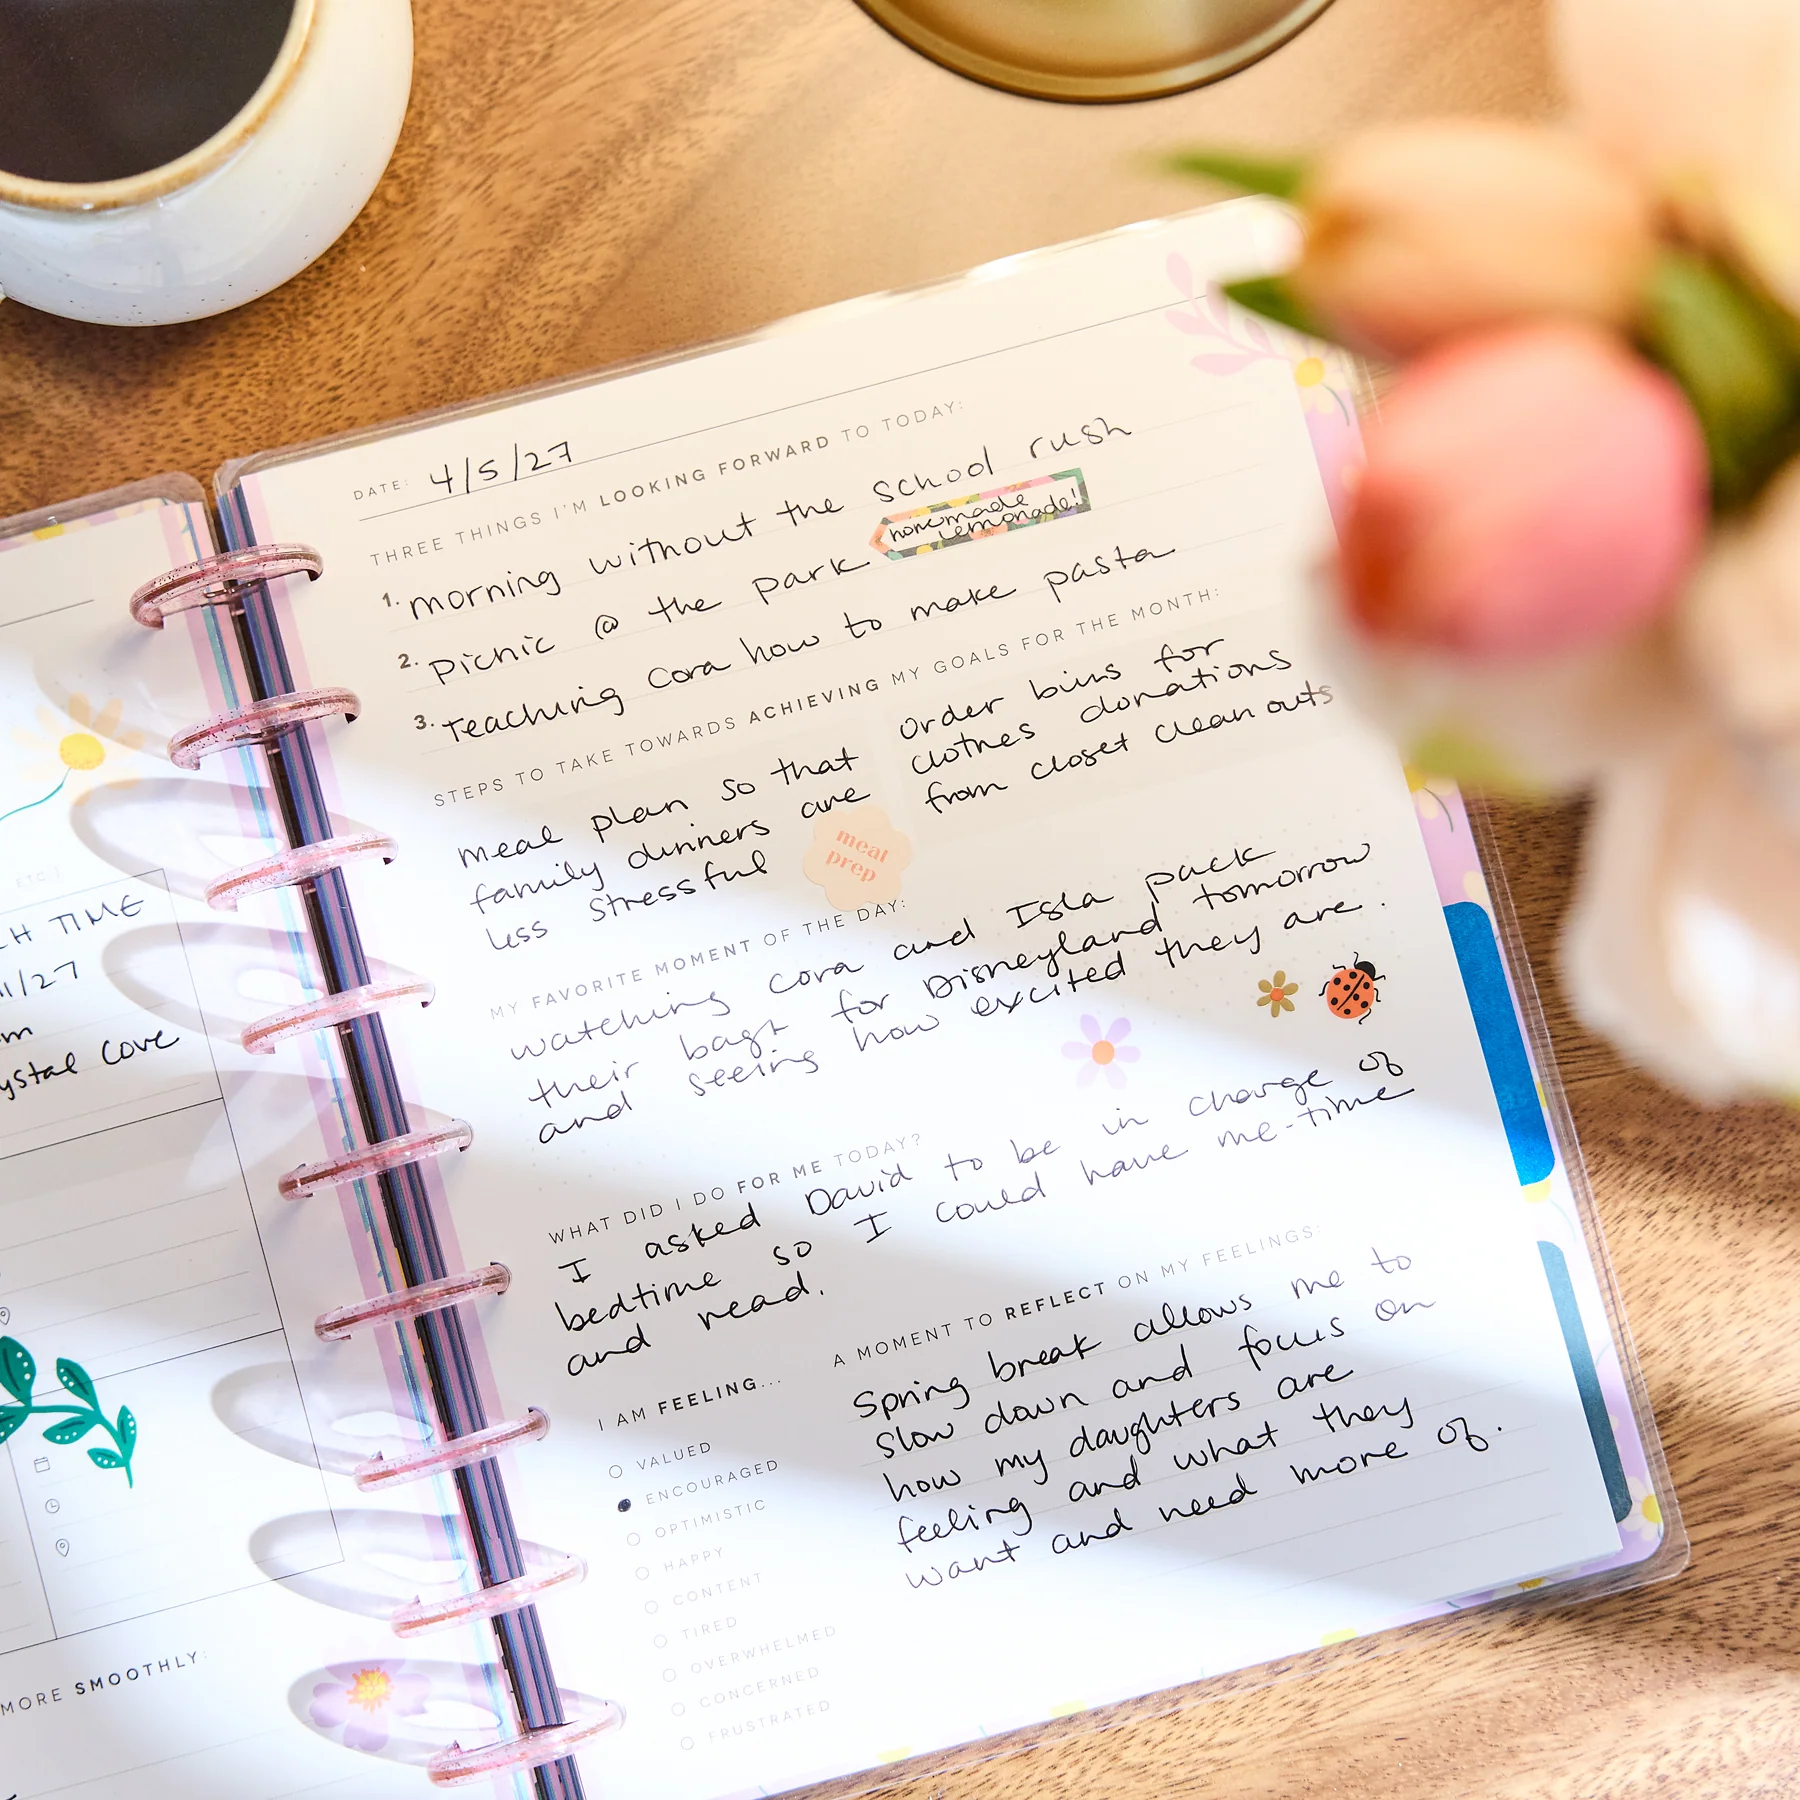 ETC.)
TIME
/27
Cove
MORE SMOOTHLY:
DATE: 4/5/27
THREE THINGS I'M LOOKING FORWARD TO TODAY:
1. morning without the school rush
2. Picnic @ the park
homemade
lemonade!
3. Teaching Cora how to make pasta
STEPS TO TAKE TOWARDS ACHIEVING MY GOALS FOR THE MONTH:
meal plan so that
family dinners are
less stressful
meal
prep
order bins for
clothes donations
from closet cleanouts
MY FAVORITE MOMENT OF THE DAY:
watching Cora and Isla pack
their bags for Disneyland tomorrow
and seeing how excited they are.
WHAT DID I DO FOR ME TODAY?
I asked David to be in charge of
bedtime so I could have me-time
and read.
I AM FEELING...
VALUED
ENCOURAGED
OPTIMISTIC
HAPPY
CONTENT
TIRED
OVERWHELMED
CONCERNED
FRUSTRATED
A MOMENT TO REFLECT ON MY FEELINGS:
Spring break allows me to
slow down and focus on
how my daughters are
feeling and what they
want and need more of.